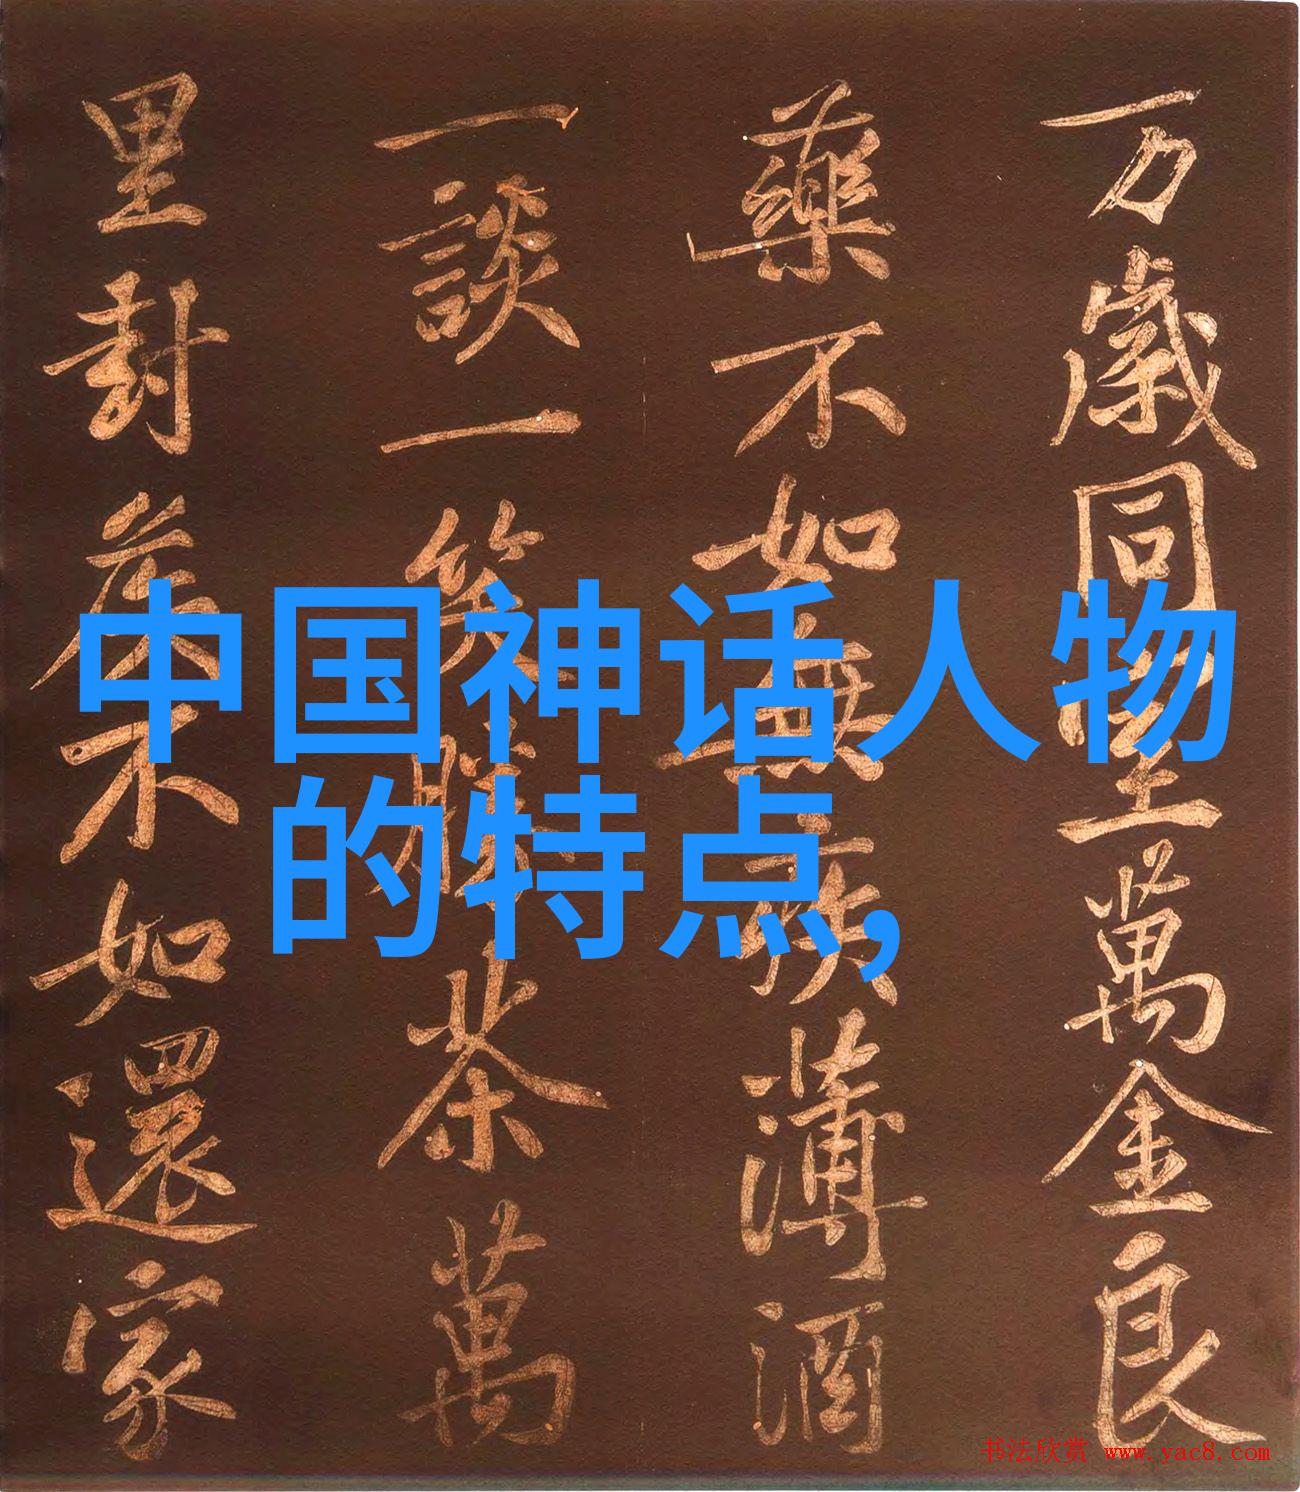 万歲同萬金良
藥不如無疾薄酒
一談一笑勝茶萬
里封侯不如還家
中国神话人物
的特点,
书法欣赏 www.yac8.com